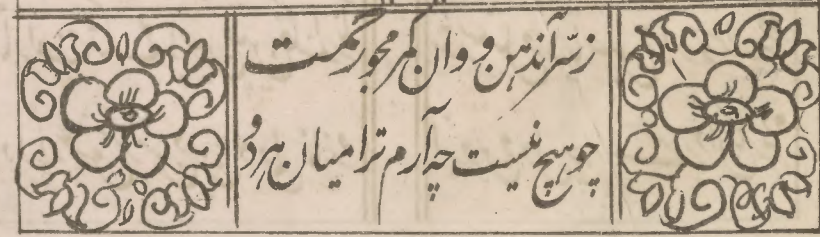 ز سّر آندهن و وان کمر مجو رگمت
چو هیچ نیست چه آرم ترا میان هردو